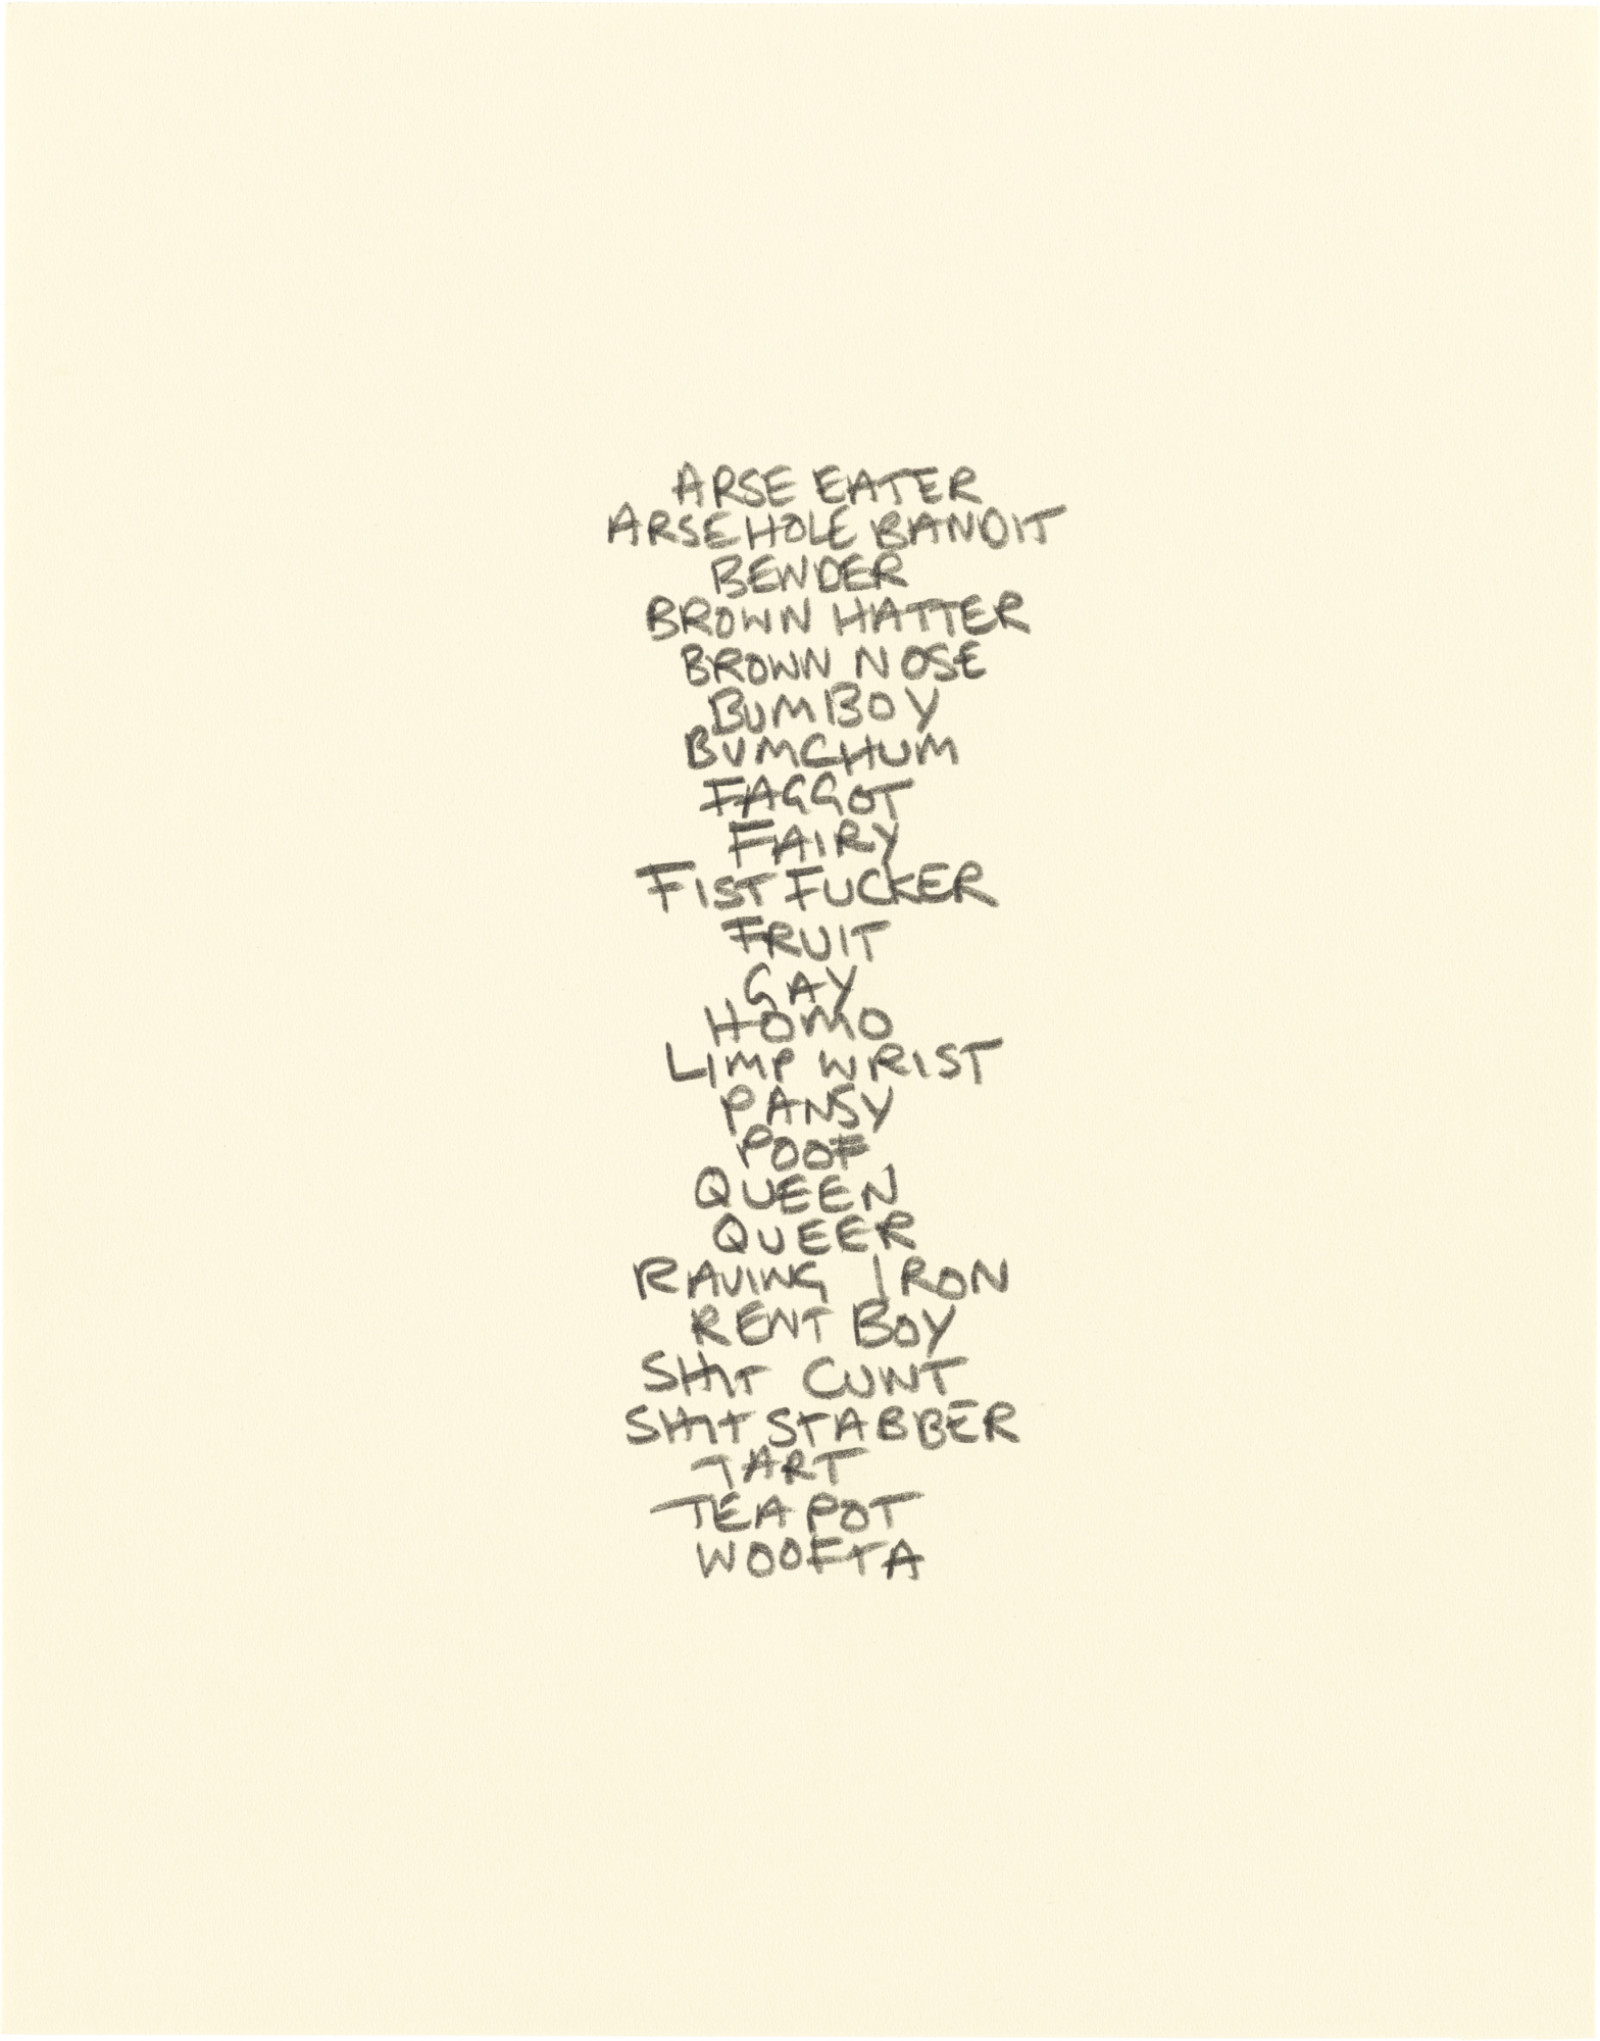 ARSE EATER
ARSEHOLE BANDIT
BENDER
BROWN HATTER
BROWN NOSE
BUMBOY
BUMCHUM
FAGGOT
FAIRY
FIST FUCKER
FRUIT
GAY
HOMO
LIMP WRIST
PANSY
POOF
QUEEN
QUEER
RAVING IRON
RENT BOY
SHIT CUNT
SHIT STABBER
TART
TEA POT
WOOFTA